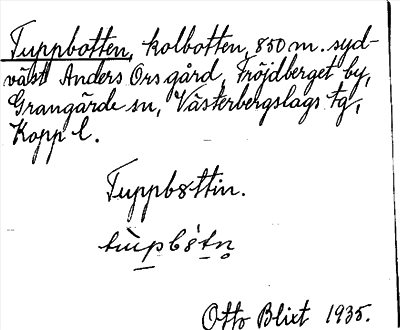 Tuppbotten, kolbotten, 850 m. syd-
väst Anders Ors gård, Fröjdberget by,
Grangärde sn, Västerbergslags tg,
Kopp l.
Tuppbåttin.
Otto Blixt 1935.